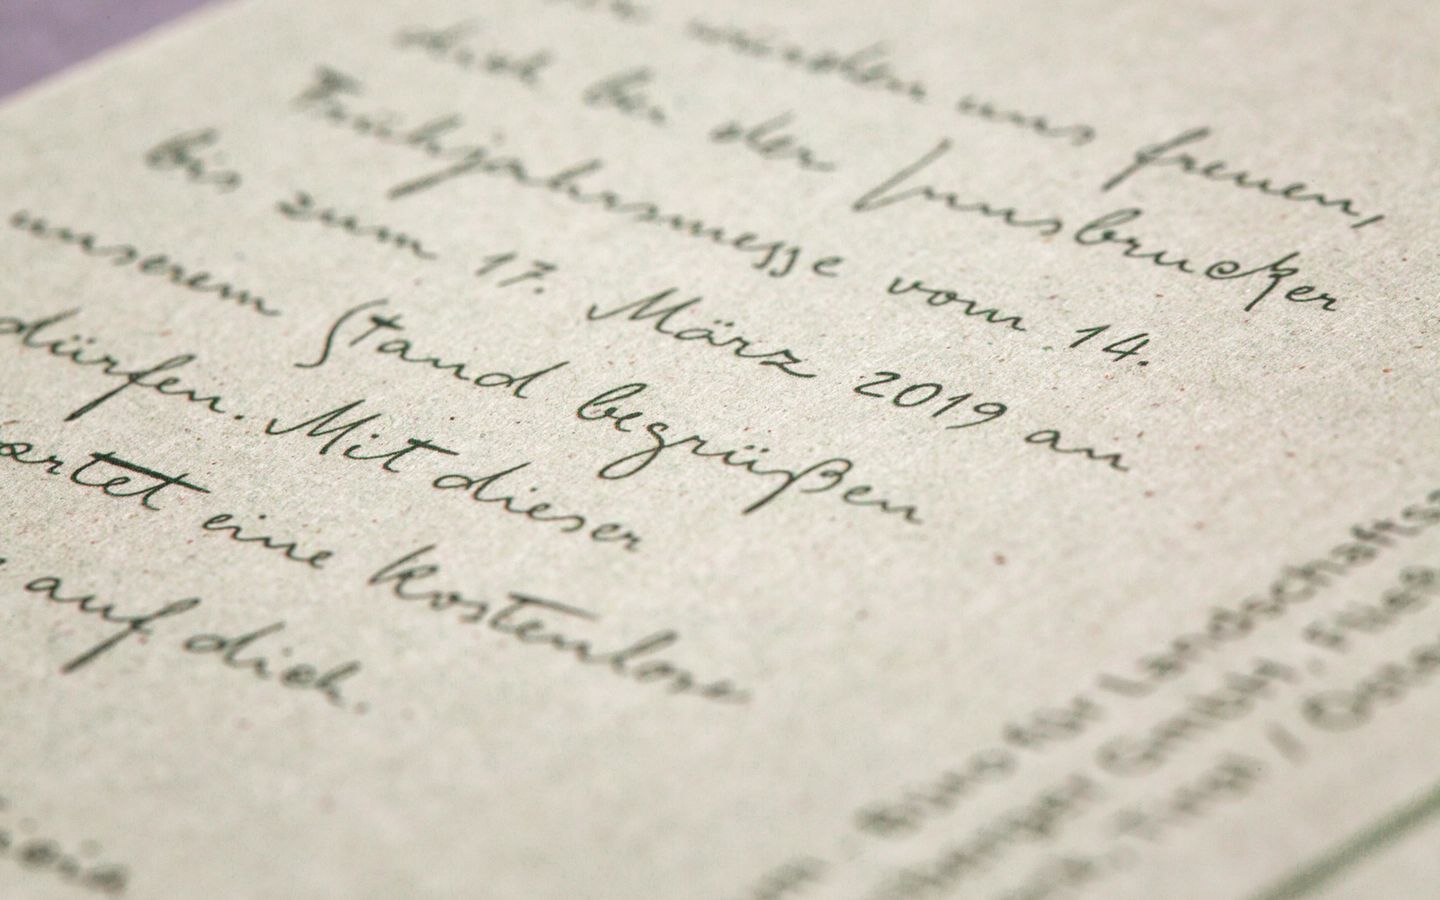 würden uns freuen,
dich bei der Innsbrucker
Frühjahrsmesse vom 14.
bis zum 17. März 2019 an
unserem Stand begrüßen
dürfen. Mit dieser
artet eine kostenlose
auf dich.
Büro für Landschafts
GmbH, Fließ
Tirol / Öster